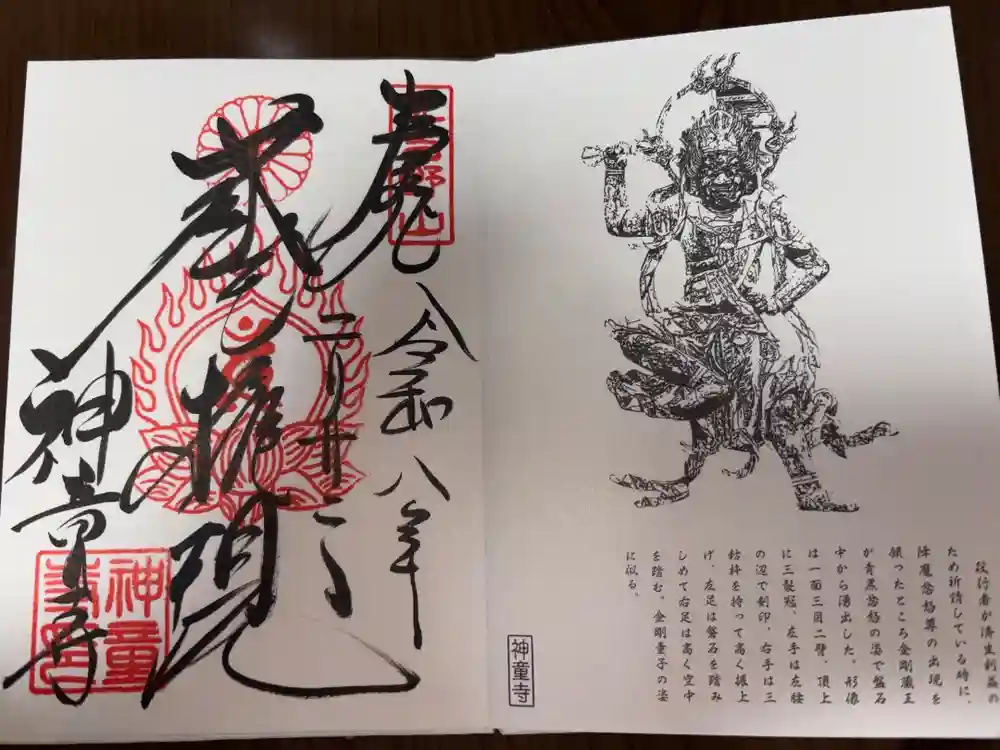 役行者が済生利益の
ため祈請している時に、
降魔忿怒尊の出現を
願ったところ金剛蔵王
が青黒忿怒の姿で盤石
中から湧出した。形像
は一面三目二臂、頂上
に三髪冠、左手は左腰
の辺で剣印、右手は三
鈷杵を持って高く振上
げ、左足は磐石を踏み
しめて右足は高く空中
を踏む。金剛童子の姿
に似る。
神童寺
令和八年
二月廿二日
蔵王権現
神童寺